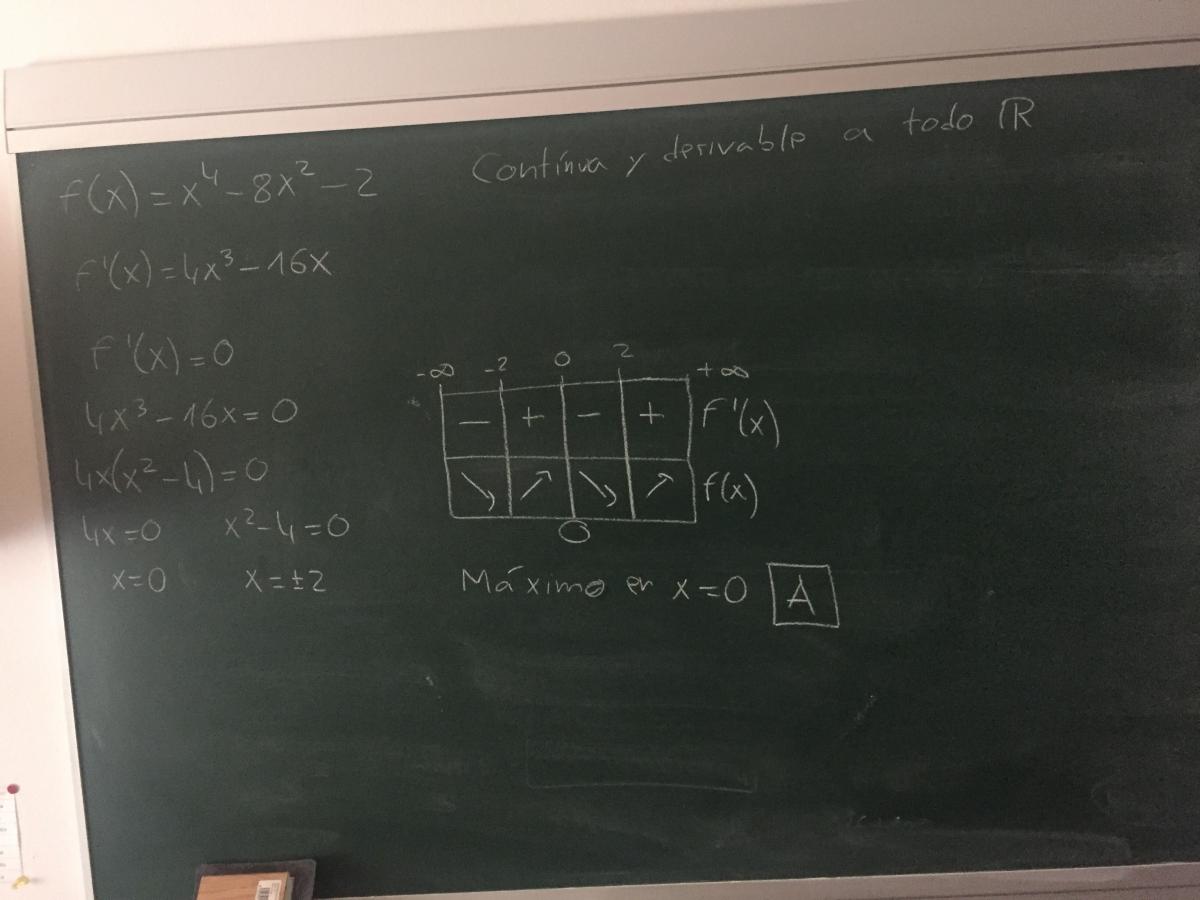 f(x) = x⁴ - 8x² - 2
Contínua y derivable a todo ℝ
f'(x) = 4x³ - 16x
f'(x) = 0
4x³ - 16x = 0
4x(x² - 4) = 0
4x = 0 x² - 4 = 0
x = 0 x = ±2
-∞ -2 0 2 +∞
- + - + f'(x)
↘ ↗ ↘ ↗ f(x)
0
Máximo en x = 0 A